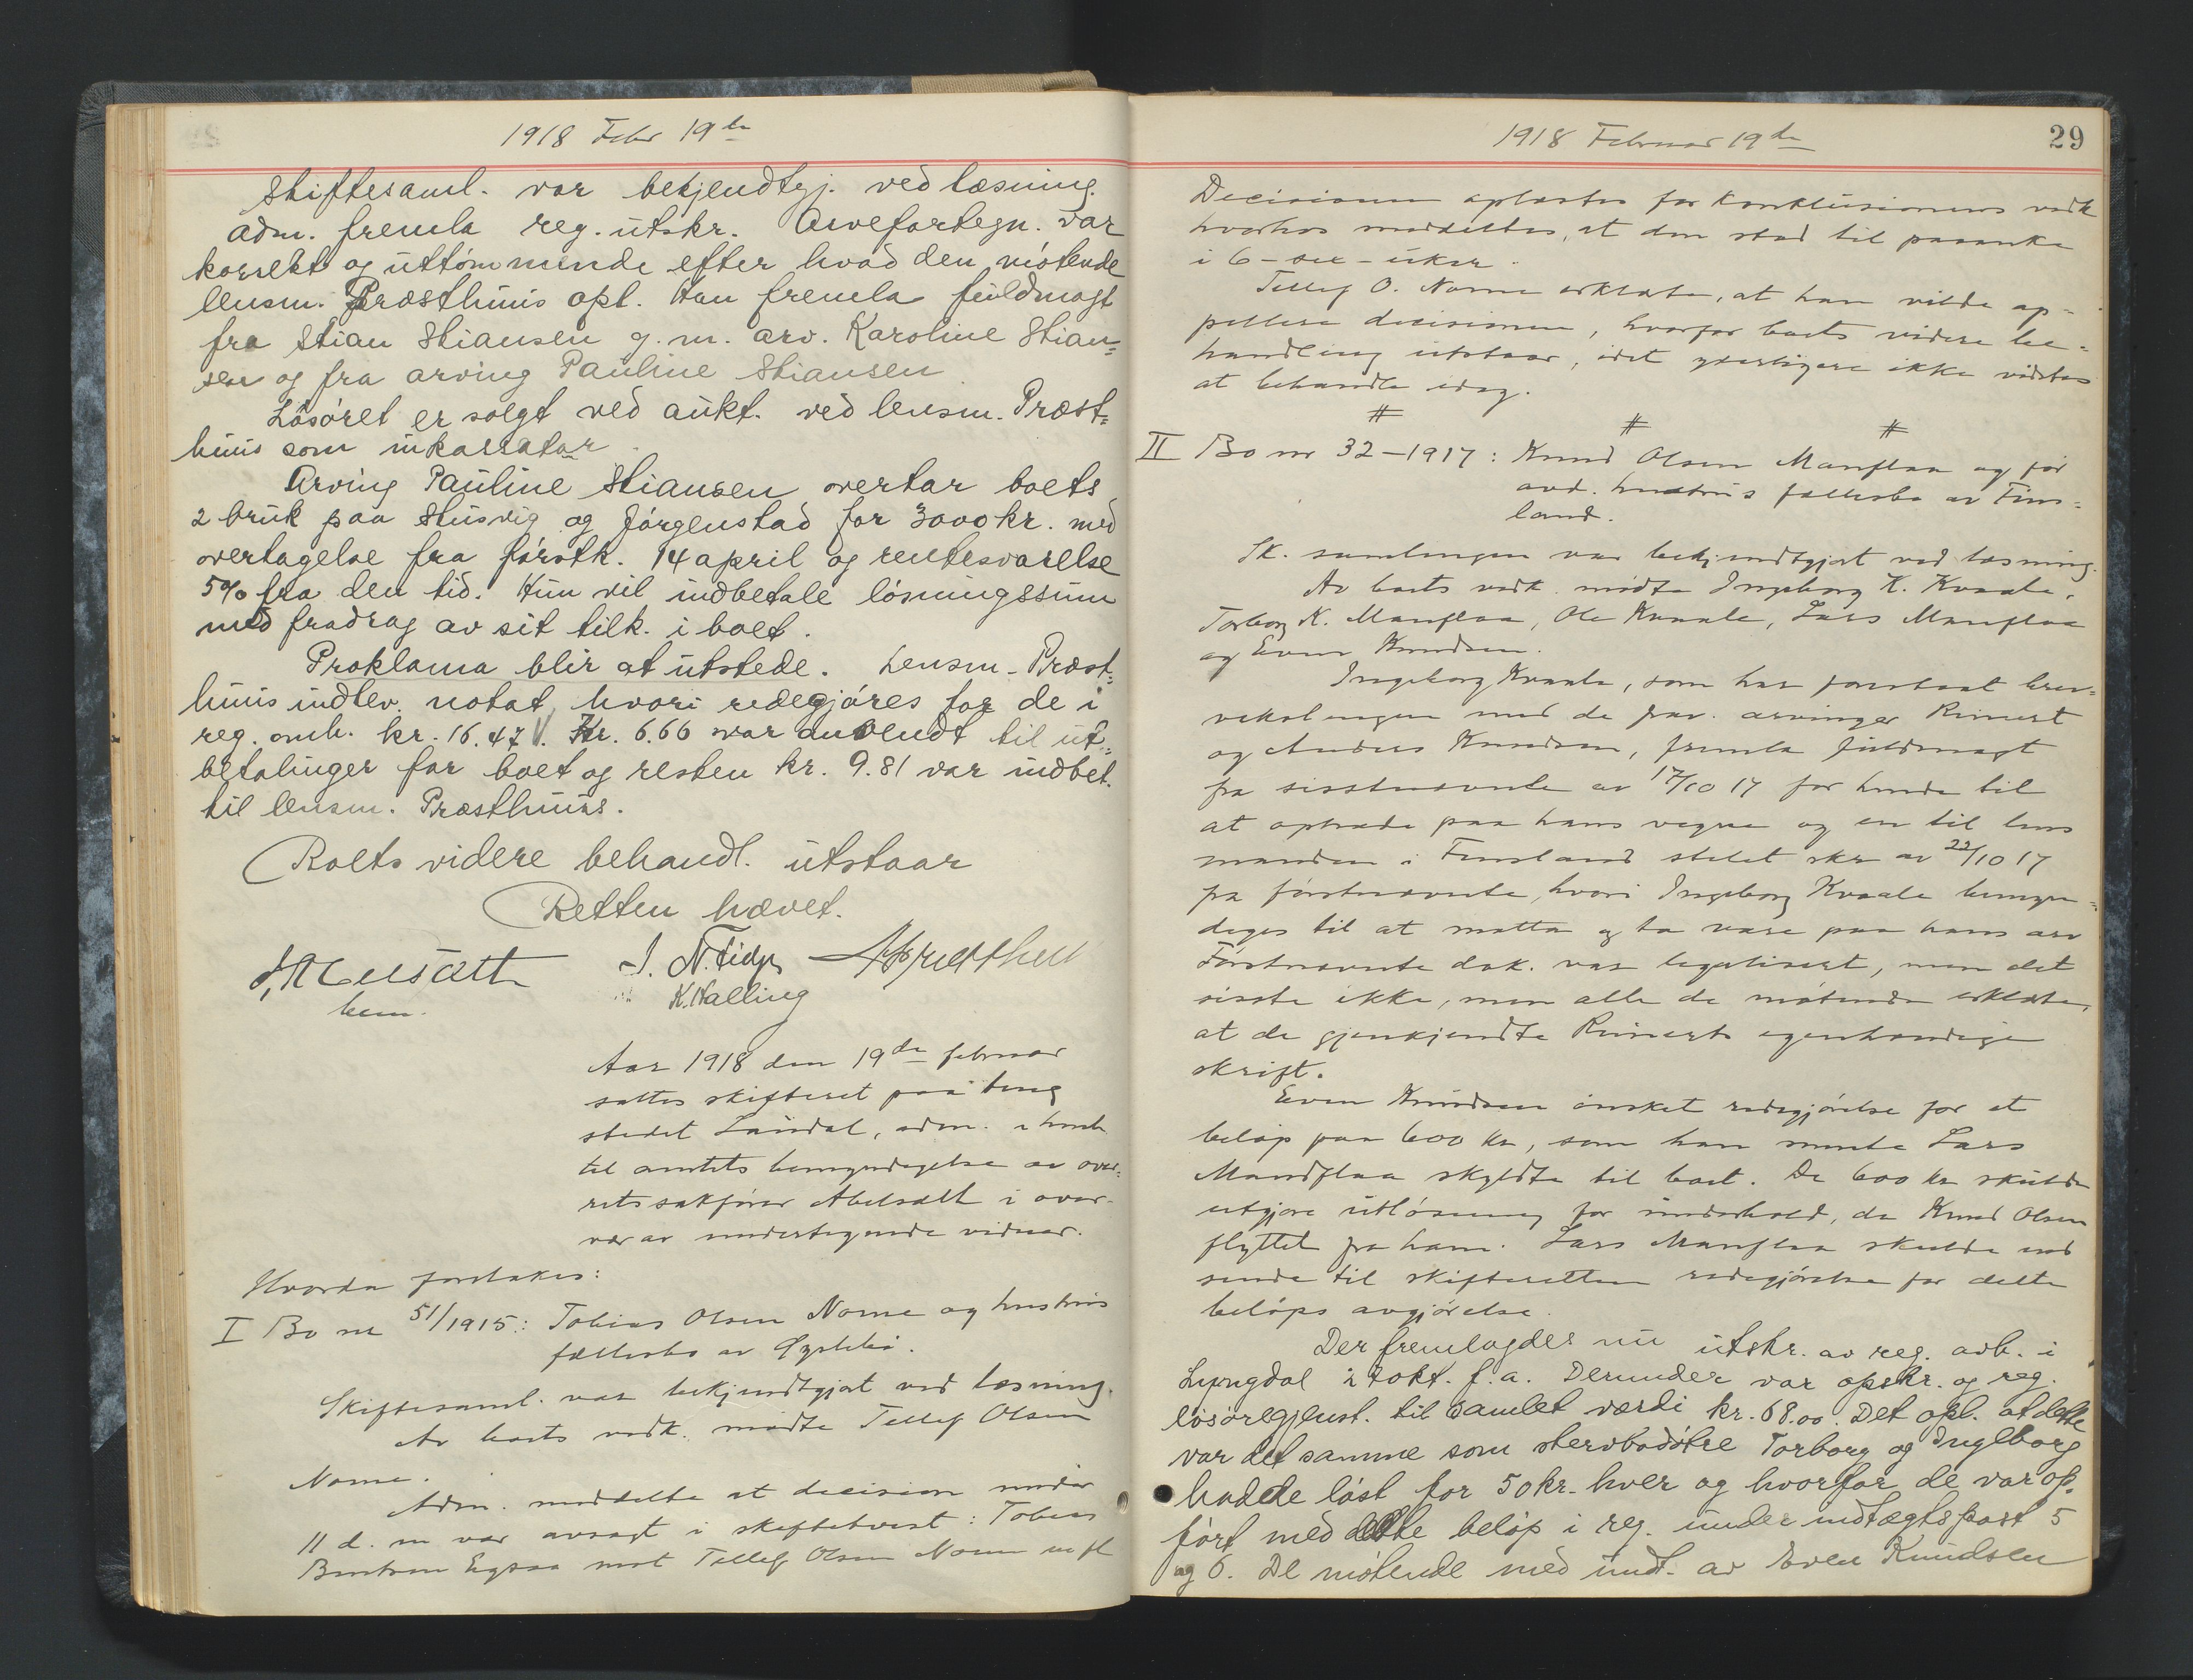 1918 Febr 19de
Skiftesaml. var bekjendtgj. ved læsning.
adm. fremla reg. utskr. Arvefortegn. var
korrekt og uttømmende efter hvad den møtende
lensm. Præsthuus opl. Han fremla fuldmagt
fra Stian Stiansen g. m. arv. Karoline Stian=
sen og fra arving Pauline Stiansen
Løsøret er solgt ved aukt. ved lensm. Præst=
huus som inkassator.
Arving Pauline Stiansen overtar boets
2 bruk paa Stusvig og Jørgenstad for 3000 kr. med
overtagelse fra førstk. 14 april og rentesvarelse
5% fra den tid. Hun vil indbetale løsningssum
med fradrag av sit tilk. i boet.
Proklama blir at utstede. Lensm. Præst=
huus indlev. notat, hvori redegjøres for de i
reg. omh. kr. 16.47. Kr. 6.66 var anvendt til ut=
betalinger for boet og resten kr. 9.81 var indbet.
til lensm. Præsthuus.
Boets videre behandl. utstaar
Retten hævet.
K. Halling
Aar 1918 den 19de februar
sattes skifteret paa ting
stedet Laudal, adm. i henh
til amtets bemyndigelse av over=
retssakfører Abelsætt i over-
vær av undertegnede vidner.
Hvorda foretakes:
I Bo nr 51/1915: Tobias Olsen Nome og hustrus
fællesbo av Øyslebø.
Skiftesaml. var bekjendtgjort ved læsning.
Av boets vedk. møtte Tellef Olsen
Nome.
Adm. meddelte at decision under
11 d. m var avsagt i skiftetvist: Tobias
Egsaa mot Tellef Olsen Nome
1918 Februar 19de
29
Decisionen oplæstes for konklusionens vedk
hvorhos meddeltes, at den stod til paaanke
i 6-sex-uker.
Tellef O. Nome erklærte, at han vilde ap=
pellere decisionen, hvorfor boets videre be=
handling utstaar, idet yderligere ikke vidstes
at behandle idag.
# # #
II Bo nr 32-1917: Knud Olsen Manflaa og før
avd. hustrus fællesbo av Fins=
land.
Sk. samlingen var bekjendtgjort ved læsning.
Av boets vedk. møtte Ingeborg K. Kvaale,
Torborg K. Manflaa, Ole Kvaale, Lars Manflaa
og Even Knudsen.
Ingeborg Kvaale, som har forestaat brev=
vekslingen med de frav. arvinger Reinert
og Anders Knudsen, fremla fuldmagt
fra sisstnævnte av 17/10 17 for hende til
at optræde paa hans vegne og en til lens
manden i Finsland stilet skr av 22/10 17
fra førstnævnte, hvori Ingeborg Kvaale bemyn=
diges til at motta og ta vare paa hans arv
Førstnævnte dok. var legalisert, men det
sisste ikke, men alle de møtende erklærte,
at de gjenkjendte Reinerts egenhændige
skrift.
Even Knudsen ønsket redegjørelse for et
beløp paa 600 kr, som han mente Lars
Mandflaa skyldte til boet. De 600 kr skulde
utgjøre utløsning for underhold, da Knud Olsen
flyttet fra ham. Lars Manflaa skulde ind
sende til skifteretten redegjørelse for dette
beløps avgjørelse.
Der fremlagdes nu utskr. av reg. avh. i
Lyngdal 2 okt. f.a. Derunder var opskr. og reg.
løsøregjenst. til samlet værdi kr. 68.00. Det opl. at dette
var det samme som stervbodøtre Torborg og Ingeborg
hadde løst for 50 kr. hver og hvorfor de var op=
ført med dette beløp i reg. under indtægtspost 5
og 6. De møtende med undt. av Even Knudsen